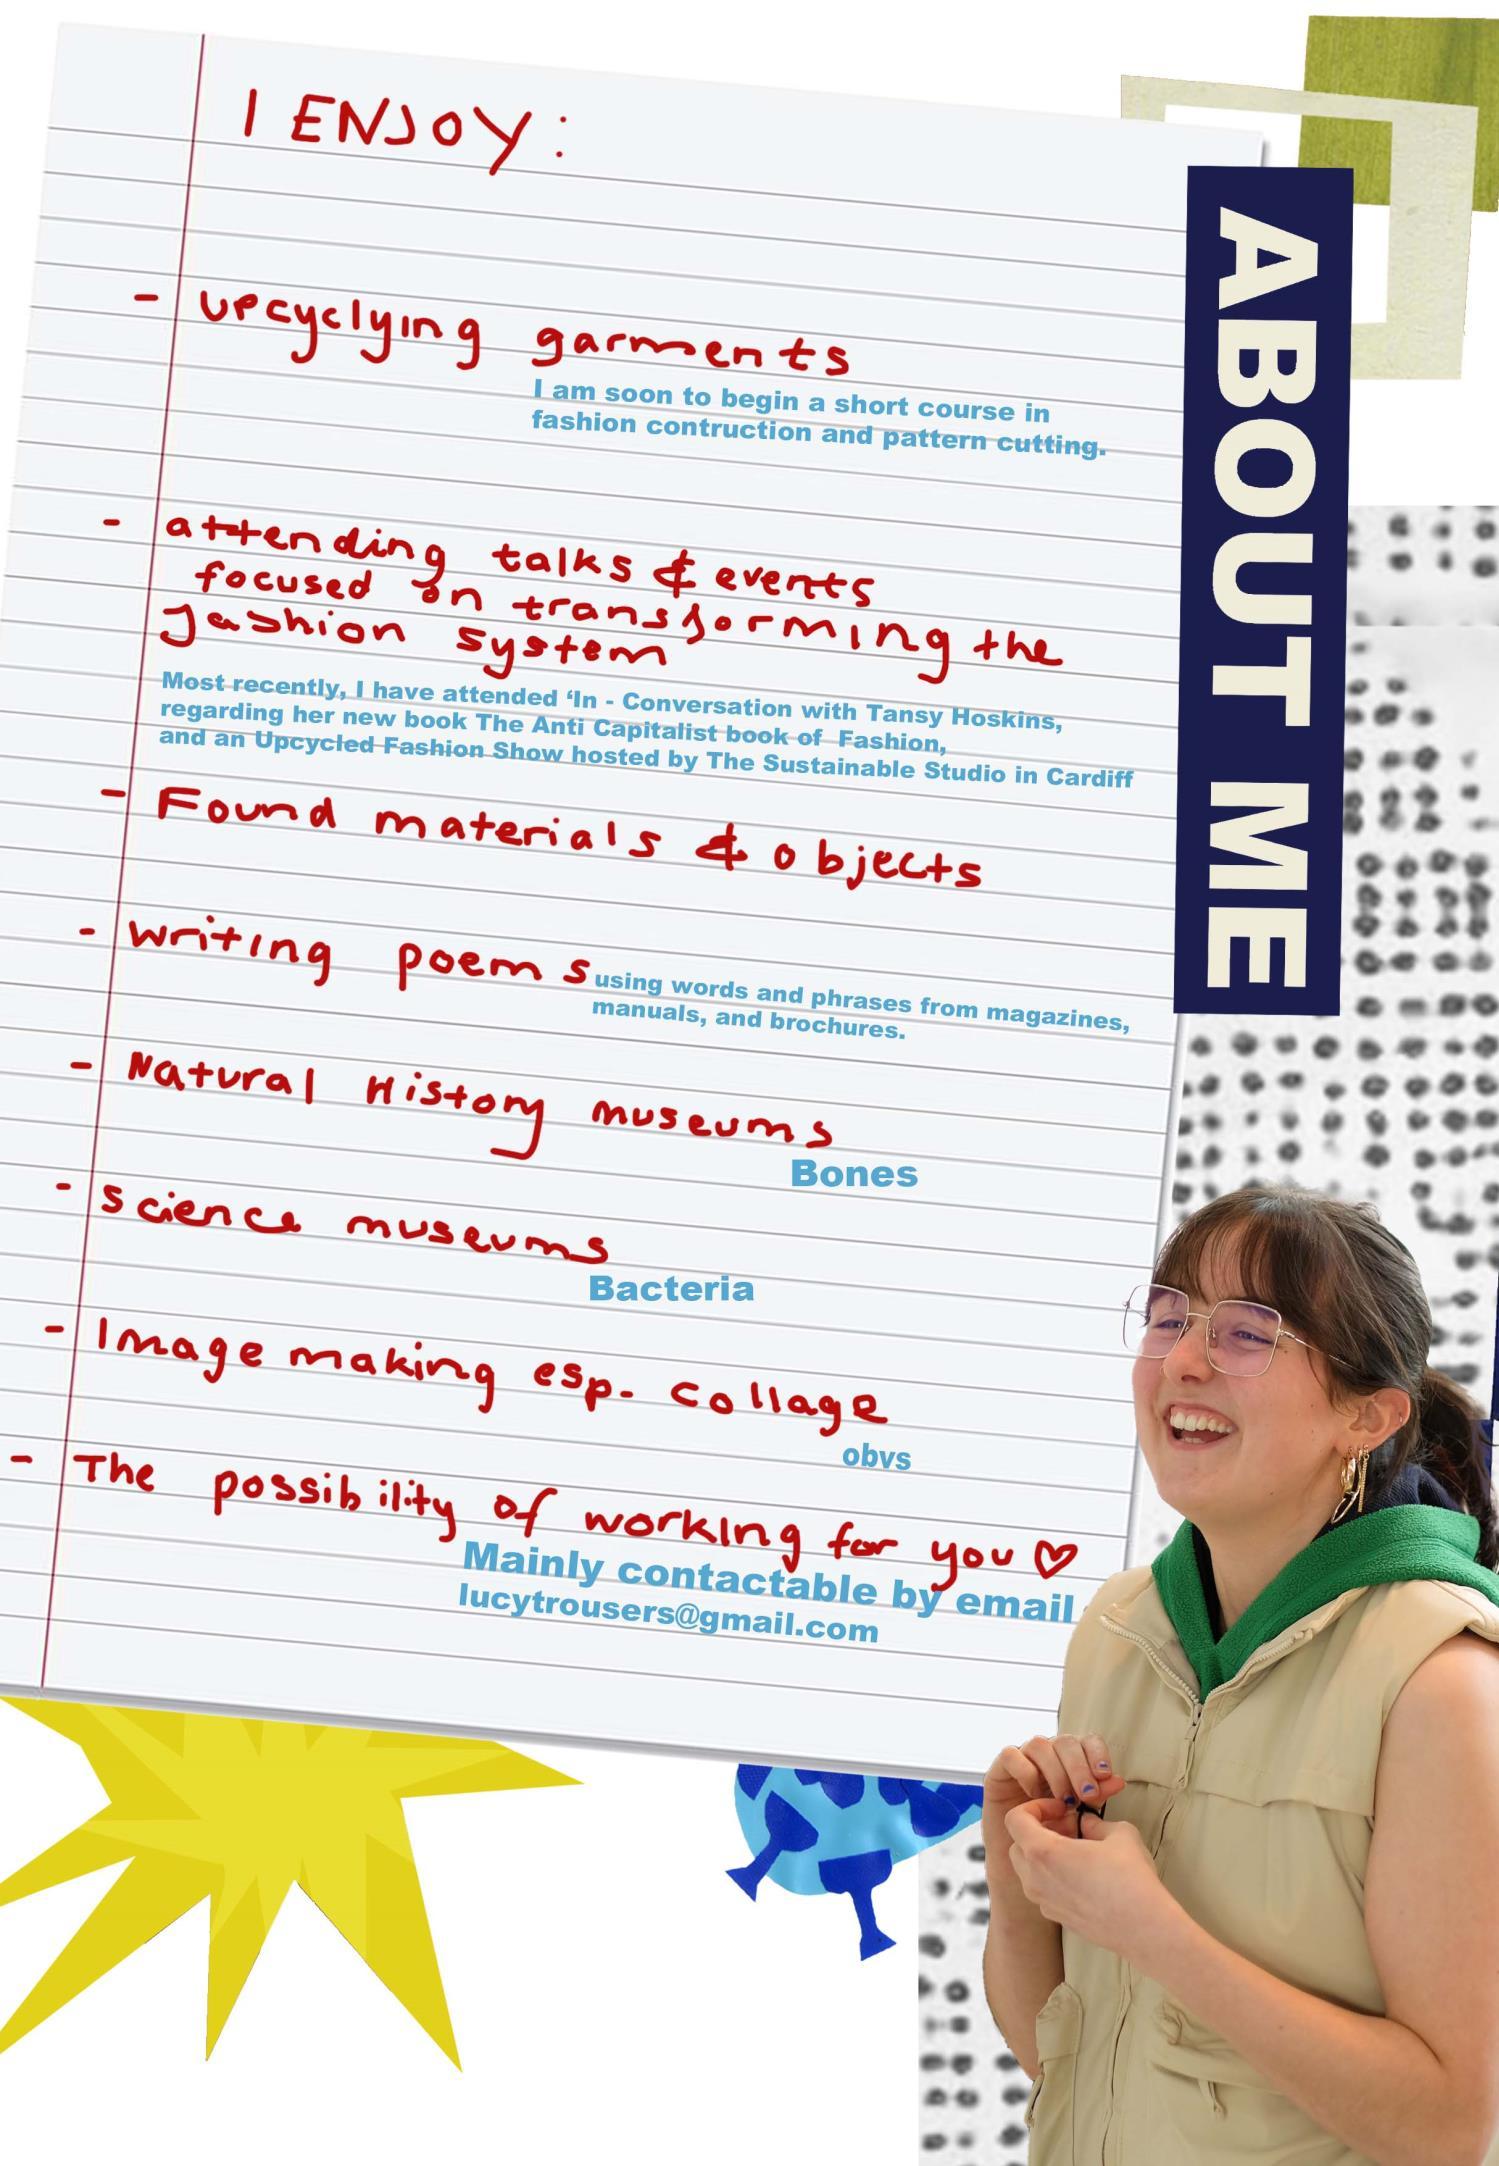 I ENJOY:
- upcyclying garments
I am soon to begin a short course in
fashion contruction and pattern cutting.
- attending talks & events
focused on transforming the
fashion system
Most recently, I have attended ‘In - Conversation with Tansy Hoskins,
regarding her new book The Anti Capitalist book of Fashion,
and an Upcycled Fashion Show hosted by The Sustainable Studio in Cardiff
- Found materials & objects
- writing poems
using words and phrases from magazines,
manuals, and brochures.
- Natural History museums
Bones
- science museums
Bacteria
- Image making esp. collage
obvs
- The possibility of working for you ♡
Mainly contactable by email
lucytrousers@gmail.com
ABOUT ME